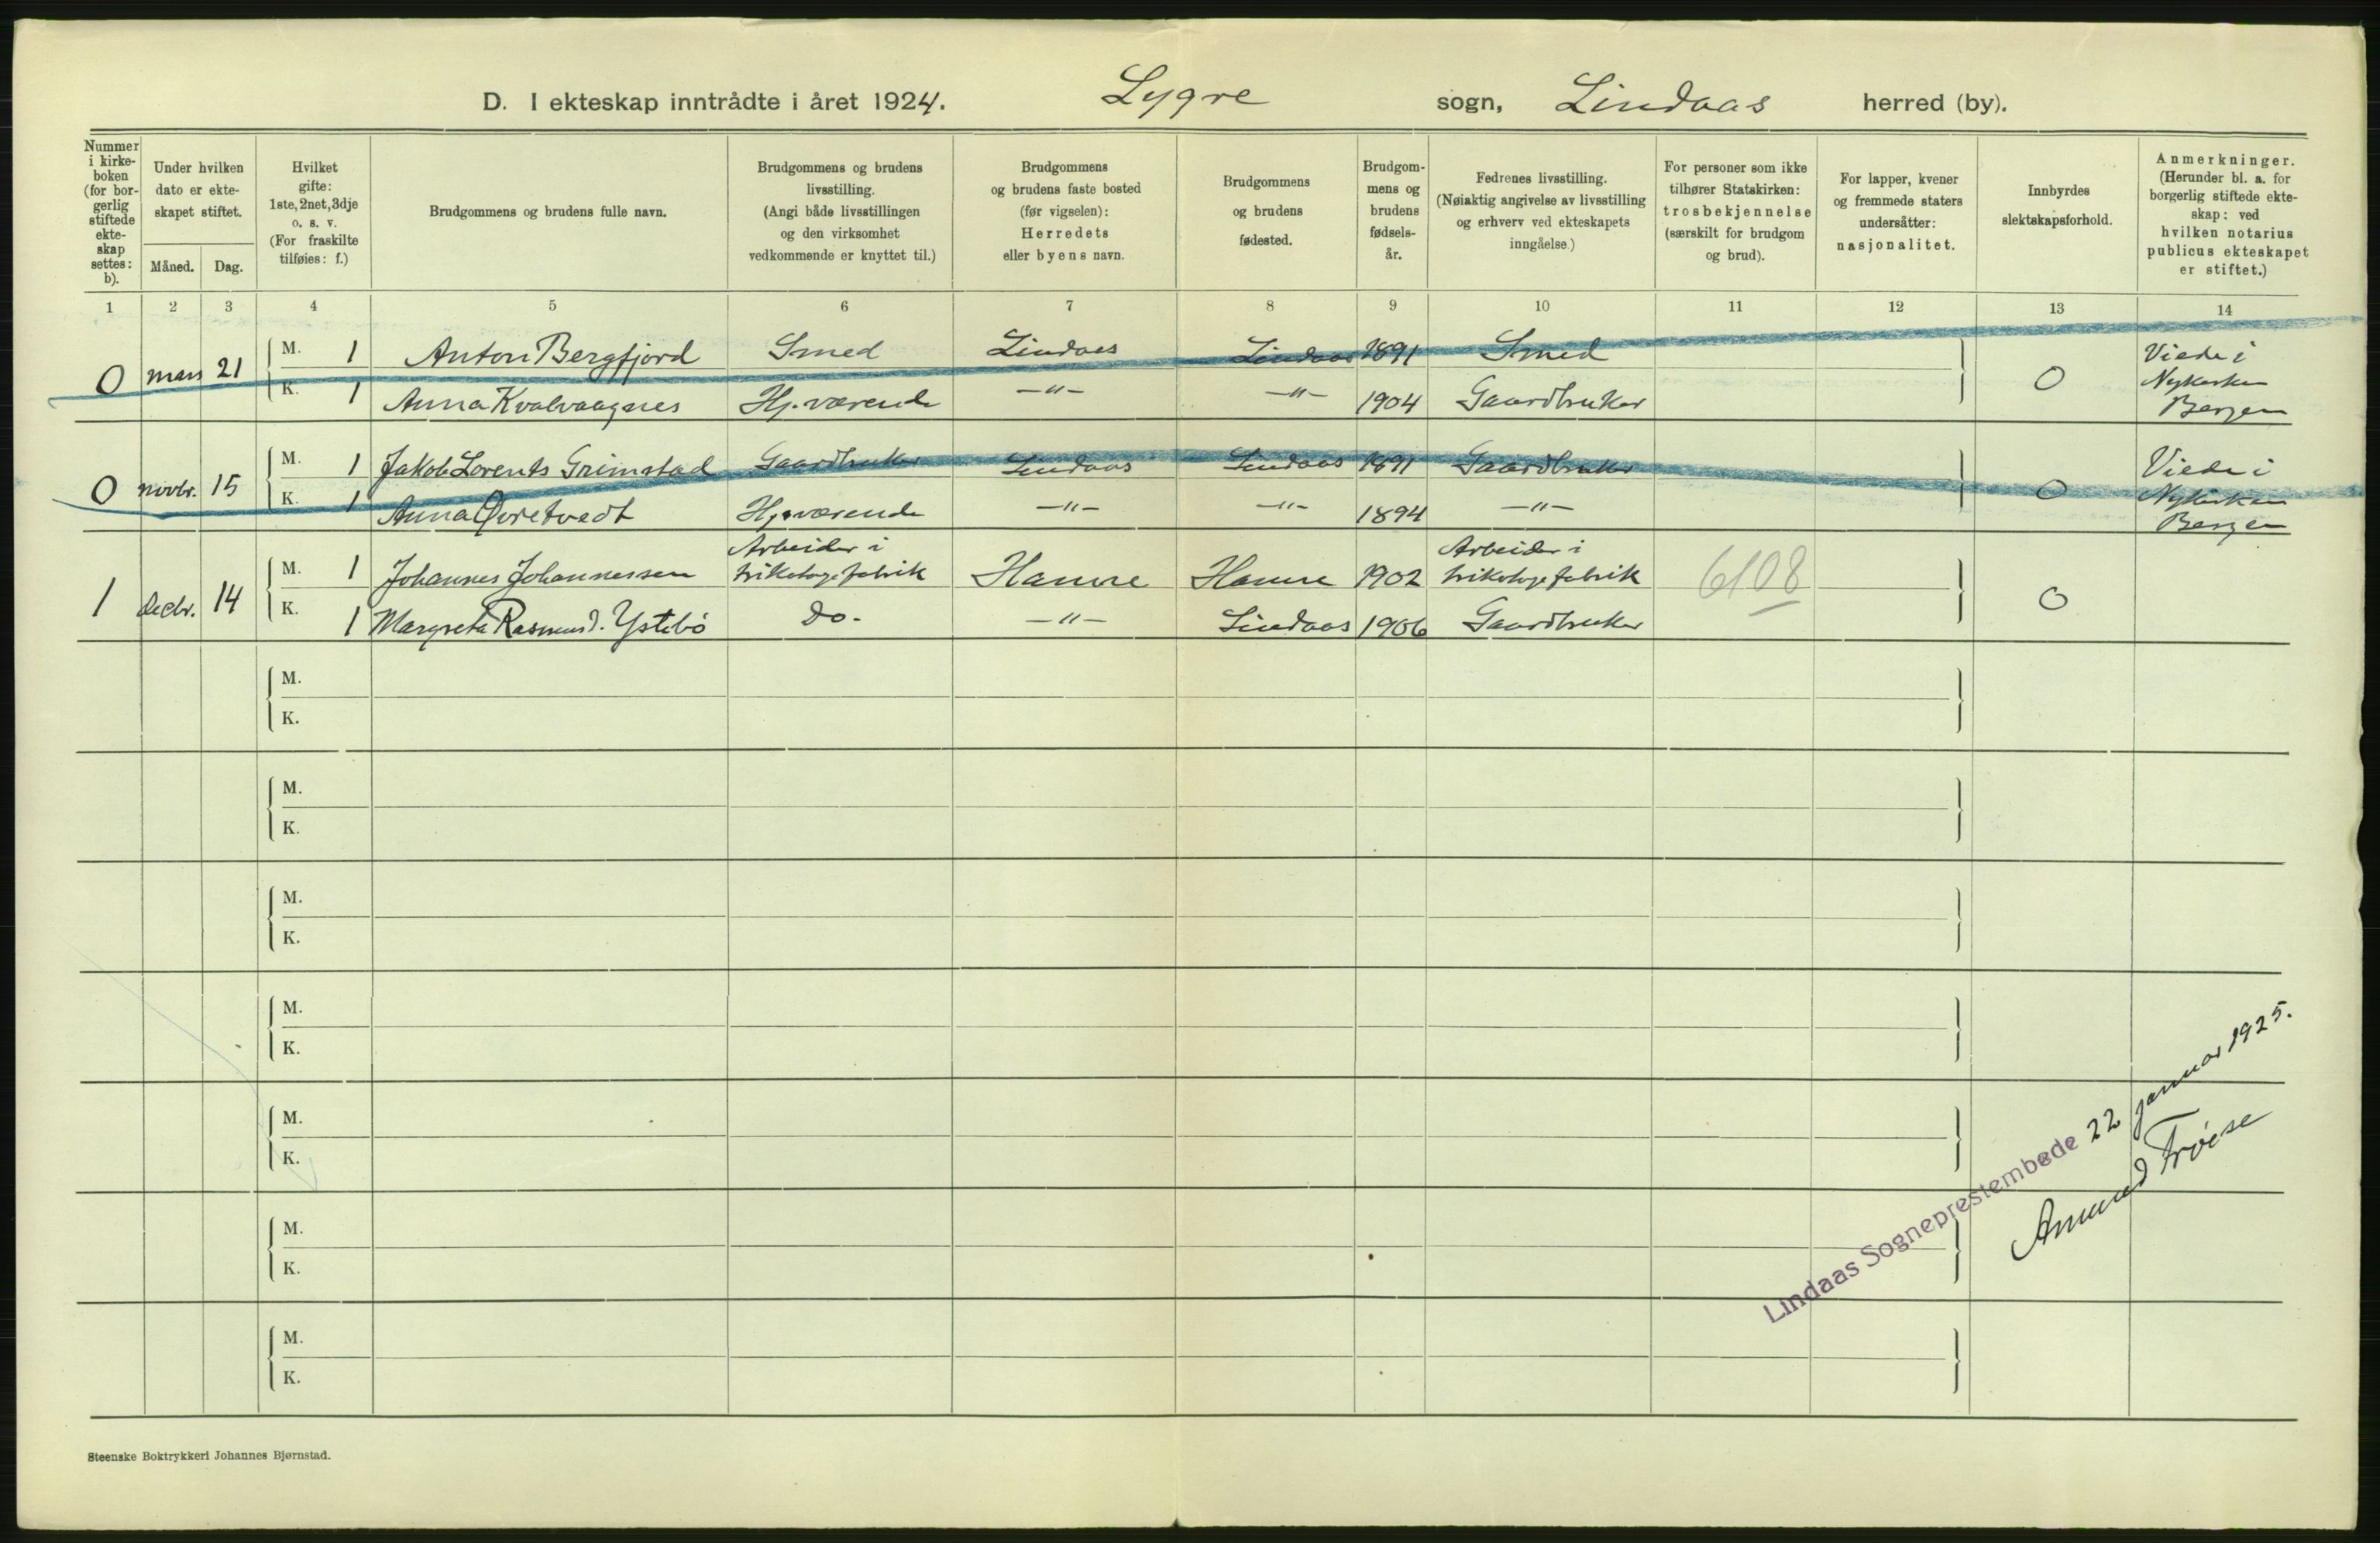 D. I ekteskap inntrådte i året 1924. Lygre sogn, Lindaas herred (by).
Nummer i kirke-boken (for bor-gerlig stiftede ekte-skap settes: b).
Under hvilken dato er ekte-skapet stiftet.
Måned. Dag.
Hvilket gifte: 1ste, 2net, 3dje o. s. v. (For fraskilte tilføies: f.)
Brudgommens og brudens fulle navn.
Brudgommens og brudens livsstilling. (Angi både livsstillingen og den virksomhet vedkommende er knyttet til.)
Brudgommens og brudens faste bosted (før vigselen): Herredets eller byens navn.
Brudgommens og brudens fødested.
Brudgom-mens og brudens fødsels-år.
Fedrenes livsstilling. (Nøiaktig angivelse av livsstilling og erhverv ved ekteskapets inngåelse.)
For personer som ikke tilhører Statskirken: trosbekjennelse (særskilt for brudgom og brud).
For lapper, kvener og fremmede staters undersåtter: nasjonalitet.
Innbyrdes slektskapsforhold.
Anmerkninger. (Herunder bl. a. for borgerlig stiftede ekte-skap: ved hvilken notarius publicus ekteskapet er stiftet.)
1 2 3 4 5 6 7 8 9 10 11 12 13 14
0 mars 21 M. 1 Anton Bergfjord Smed Lindaas Lindaas 1891 Smed 0 Viede i Nykirken Bergen
K. 1 Anna Kvalvaagnes Hj.værende —"— —"— 1904 Gaardbruker
0 novbr. 15 M. 1 Jakob Lorents Grimstad Gaardbruker Lindaas Lindaas 1891 Gaardbruker 0 Viede i Nykirken Bergen
K. 1 Anna Øvretvedt Hj.værende —"— —"— 1894 —"—
1 decbr. 14 M. 1 Johannes Johannessen Arbeider i trikotagefabrik Hamre Hamre 1902 Arbeider i trikotagefabrik 6108 0
K. 1 Margreta Rasmusd. Ystebö Do. —"— Lindaas 1906 Gaardbruker
M.
K.
M.
K.
M.
K.
M.
K.
M.
K.
M.
K.
M.
K.
Lindaas Sogneprestembede 22 januar 1925.
Steenske Boktrykkeri Johannes Bjørnstad.